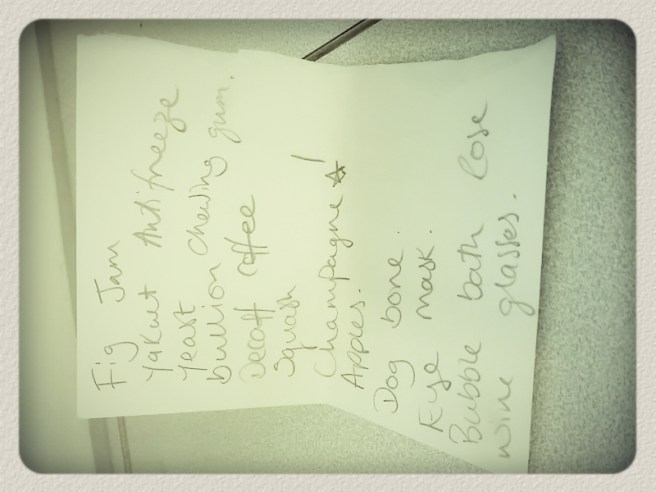 Fig Jam
Yakult Antifreeze
Yeast
bullion Chewing gum.
Decaff coffee
Squash
Champagne ☆ !
Apples.
Dog bone.
Eye mask.
Bubble bath lose
wine glasses.